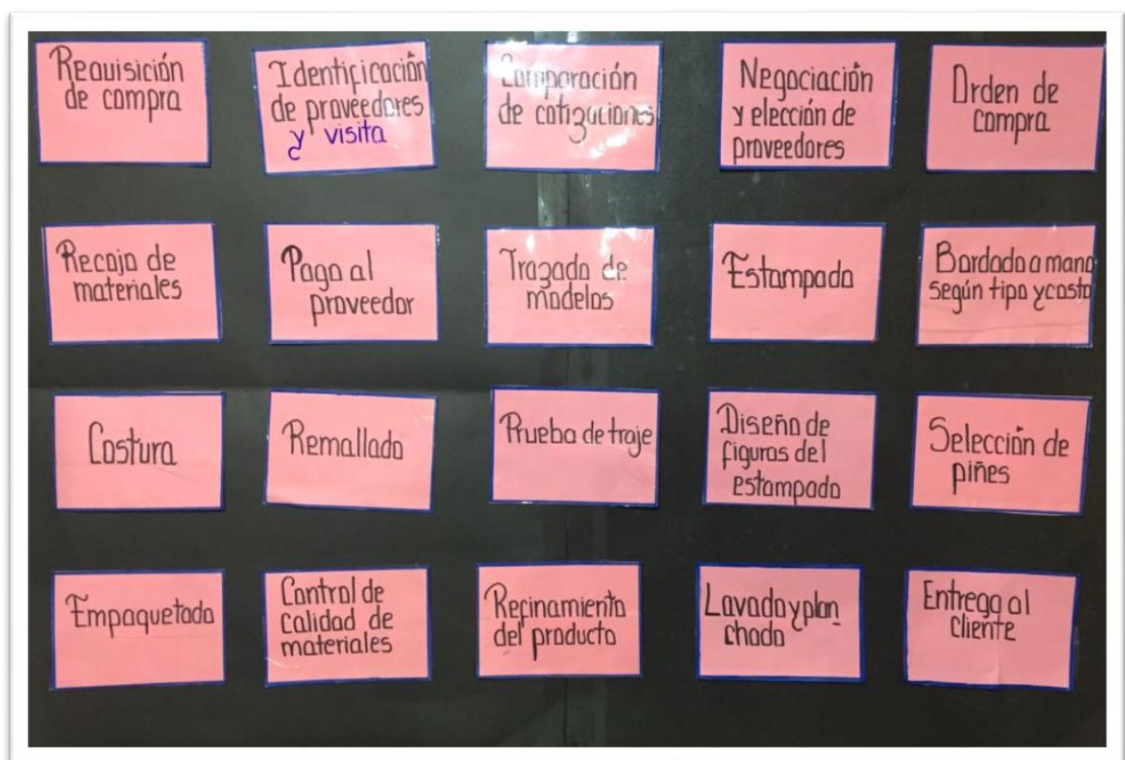 Requisición
de compra
Identificación
de proveedores
y visita
Comparación
de cotizaciones
Negociación
y elección de
proveedores
Orden de
compra
Recojo de
materiales
Pago al
proveedor
Trazado de
modelos
Estampado
Bordado a mano
según tipo y costo
Costura
Remallado
Prueba de traje
Diseño de
figuras del
estampado
Selección de
piñes
Empaquetado
Control de
calidad de
materiales
Refinamiento
del producto
Lavado y plan
chado
Entrega al
cliente